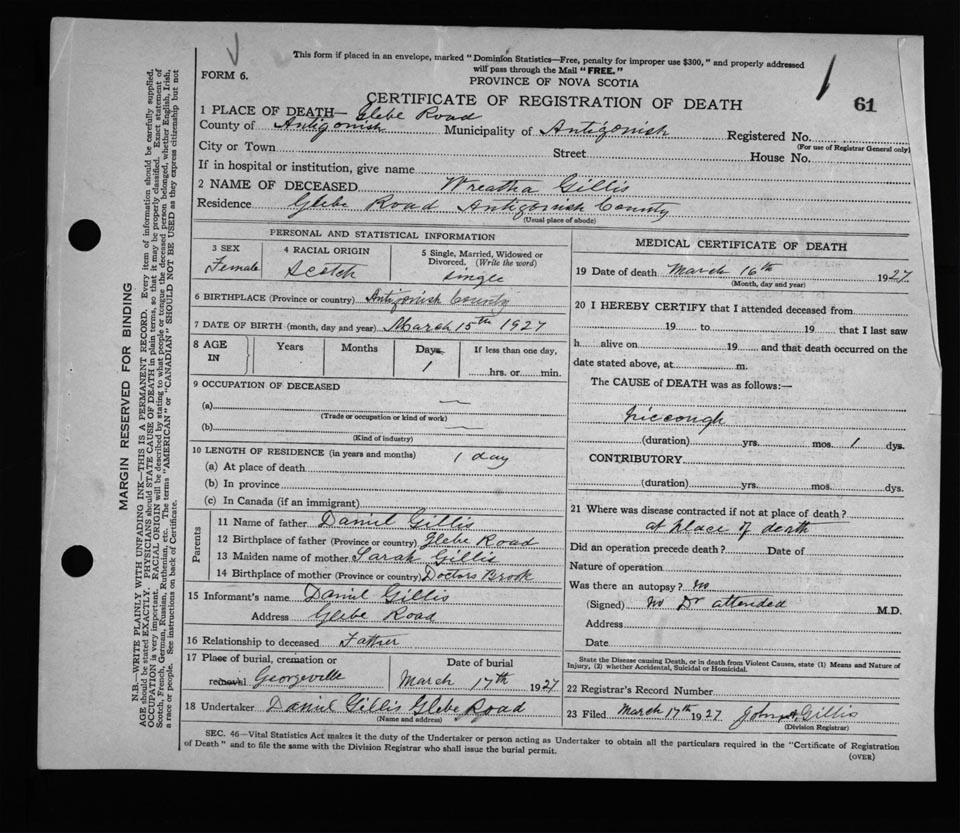 This form if placed in an envelope, marked "Dominion Statistics—Free, penalty for improper use $300," and properly addressed
will pass through the Mail "FREE."
FORM 6.
PROVINCE OF NOVA SCOTIA
61
CERTIFICATE OF REGISTRATION OF DEATH
1 PLACE OF DEATH— Glebe Road
County of Antigonish Municipality of Antigonish Registered No.
(For use of Registrar General only)
City or Town Street House No.
If in hospital or institution, give name
2 NAME OF DECEASED Wreatha Gillis
Residence Glebe Road Antigonish County
(Usual place of abode)
PERSONAL AND STATISTICAL INFORMATION
3 SEX Female
4 RACIAL ORIGIN Scotch
5 Single, Married, Widowed or
Divorced. (Write the word)
single
6 BIRTHPLACE (Province or country) Antigonish County
7 DATE OF BIRTH (month, day and year) March 15th 1927
8 AGE IN Years Months Days If less than one day,
1 hrs. or min.
9 OCCUPATION OF DECEASED
(a) —
(Trade or occupation or kind of work)
(b) —
(Kind of industry)
10 LENGTH OF RESIDENCE (in years and months) 1 day
(a) At place of death
(b) In province
(c) In Canada (if an immigrant)
Parents
11 Name of father Daniel Gillis
12 Birthplace of father (Province or country) Glebe Road
13 Maiden name of mother Sarah Gillis
14 Birthplace of mother (Province or country) Doctors Brook
15 Informant's name Daniel Gillis
Address Glebe Road
16 Relationship to deceased Father
17 Place of burial, cremation or Date of burial
removal Georgeville March 17th 1927
18 Undertaker Daniel Gillis Glebe Road
(Name and address)
MEDICAL CERTIFICATE OF DEATH
19 Date of death March 16th 1927
(Month, day and year)
20 I HEREBY CERTIFY that I attended deceased from
19 to 19 that I last saw
h alive on 19 and that death occurred on the
date stated above, at m.
The CAUSE of DEATH was as follows:—
hiccough
(duration) yrs. mos. 1 dys.
CONTRIBUTORY
(duration) yrs. mos. dys.
21 Where was disease contracted if not at place of death?
at place of death
Did an operation precede death? Date of
Nature of operation
Was there an autopsy? no
(Signed) no Dr attended M.D.
Address
Date
State the Disease causing Death, or in death from Violent Causes, state (1) Means and Nature of
Injury, (2) whether Accidental, Suicidal or Homicidal.
22 Registrar's Record Number
23 Filed March 17th 1927 John A Gillis
(Division Registrar)
SEC. 46—Vital Statistics Act makes it the duty of the Undertaker or person acting as Undertaker to obtain all the particulars required in the "Certificate of Registration
of Death" and to file the same with the Division Registrar who shall issue the burial permit.
(OVER)
MARGIN RESERVED FOR BINDING
N.B.—WRITE PLAINLY WITH UNFADING INK—THIS IS A PERMANENT RECORD. Every item of information should be carefully supplied.
AGE should be stated EXACTLY. PHYSICIANS should STATE CAUSE OF DEATH in plain terms, so that it may be properly classified. Exact statement of
OCCUPATION is very important. RACIAL ORIGIN will be described by stating to what people or tongue the deceased person belonged, whether English, Irish,
Scotch, French, German, Russian, Ruthenian, etc. The terms "AMERICAN" or "CANADIAN" SHOULD NOT BE USED as they express citizenship but not
a race or people. See instructions on back of Certificate.